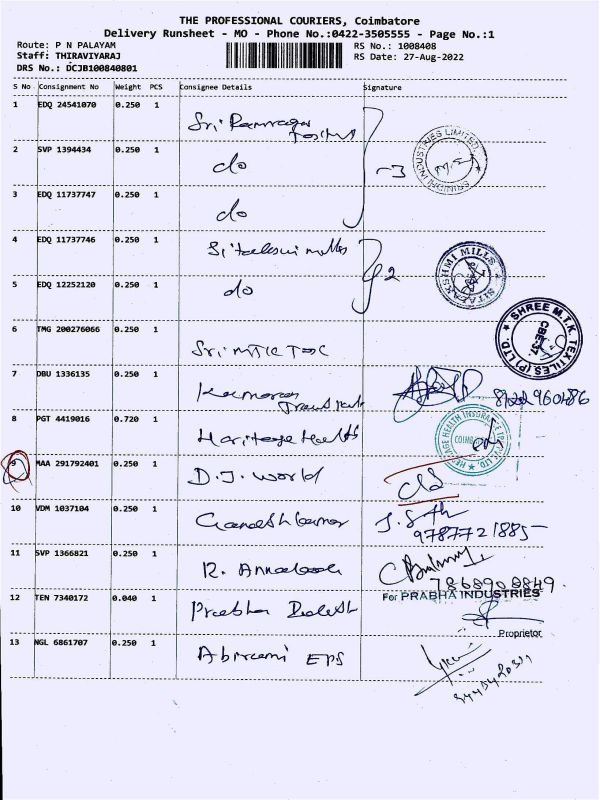 THE PROFESSIONAL COURIERS, Coimbatore
Delivery Runsheet - MO - Phone No.:0422-3505555 - Page No.:1
Route: P N PALAYAM
RS No.: 1008408
Staff: THIRAVIYARAJ
RS Date: 27-Aug-2022
DRS No.: DCJB100840801
S No Consignment No Weight PCS Consignee Details Signature
1 EDQ 24541070 0.250 1
2 SVP 1394434 0.250 1 do
-3
SRINIDHI INDUSTRIES LIMITED
3 EDQ 11737747 0.250 1 do
4 EDQ 11737746 0.250 1
2
SITALAKSHMI MILLS
5 EDQ 12252120 0.250 1 do
6 TMG 200276066 0.250 1 Sri MTK Tex
SHREE M.T.K. TEXTILES (P) LTD.
CBE
7 DBU 1336135 0.250 1
8 PGT 4419016 0.720 1 Heritage Health
HERITAGE HEALTH INSURANCE TPA PVT. LTD.
9 MAA 291792401 0.250 1 D.J. World
10 VDM 1037104 0.250 1 Ganesh kumar
9787721885
11 SVP 1366821 0.250 1
7868908849.
12 TEN 7340172 0.040 1 Prabha
For PRABHA INDUSTRIES
Proprietor
13 NGL 6861707 0.250 1 Abirami EPS